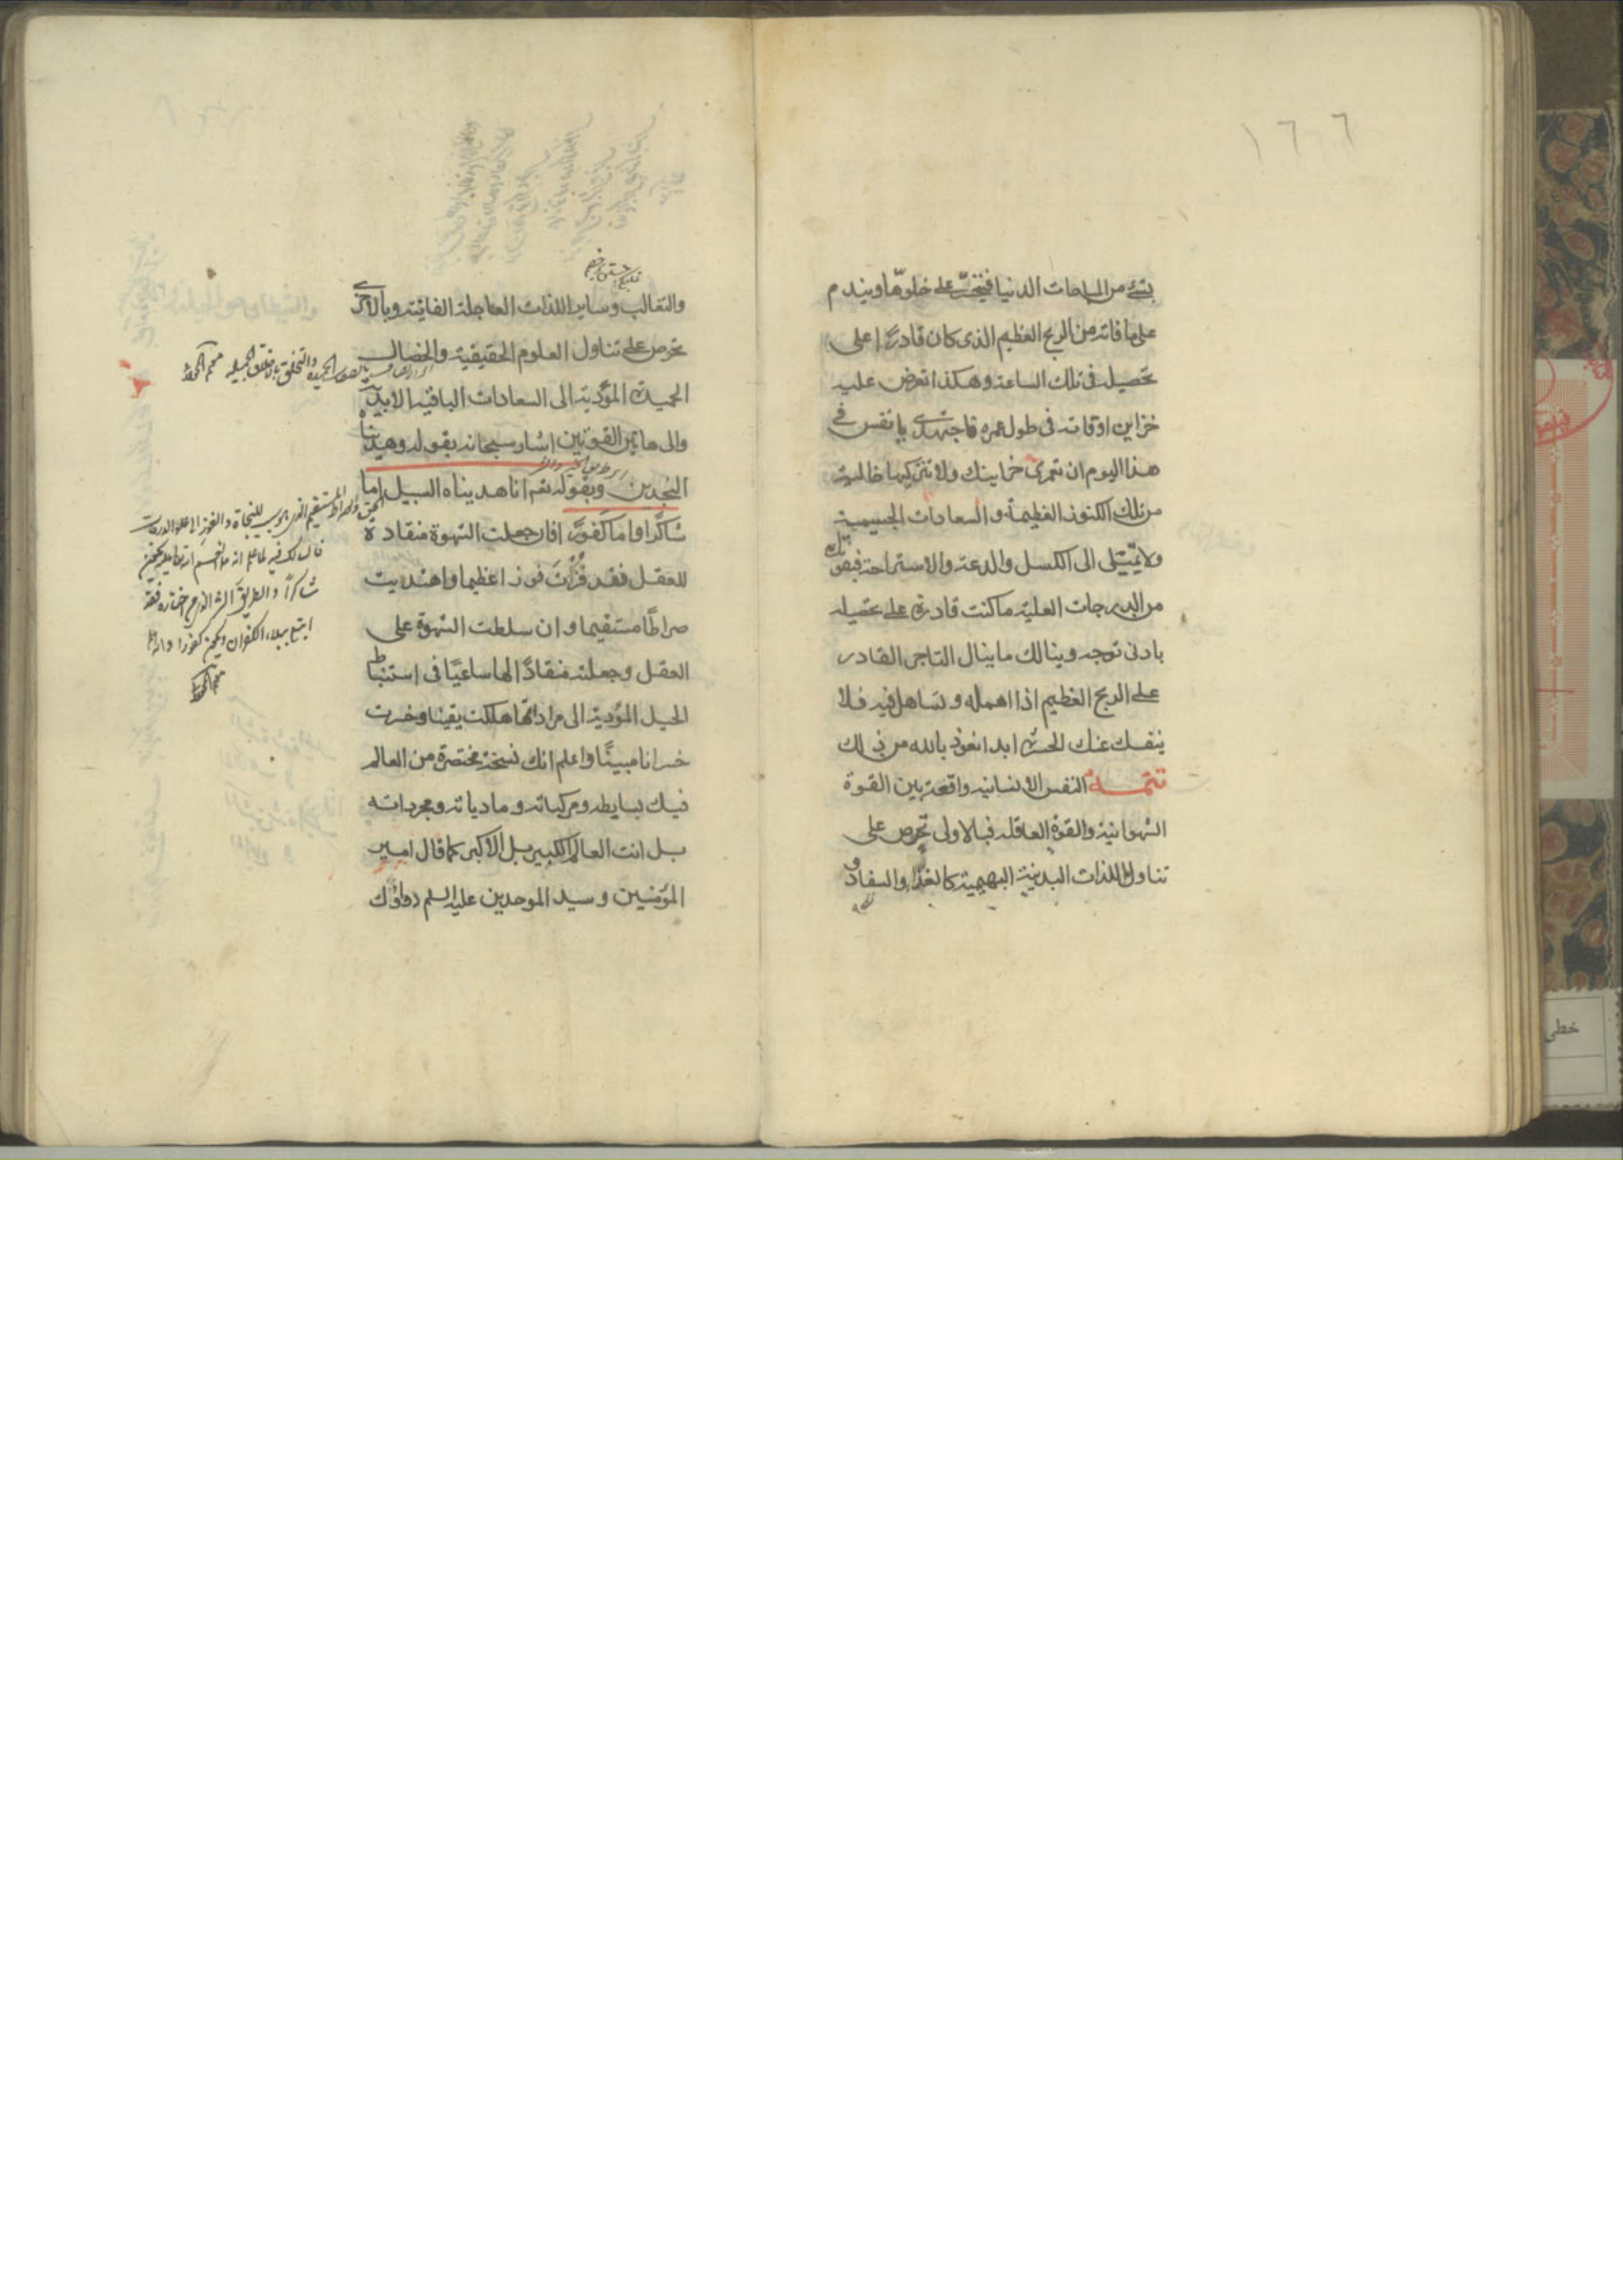 ١٦٦
بشئ من المباحات الدنيا فيتحسر على خلوها ويندم
على ما فاته من الربح العظيم الذى كان قادرا على
تحصيله فى تلك الساعة وهكذا تعرض عليه
خزاين اوقاته فى طول عمره فاجتهدى يا نفس فى
هذا اليوم ان تعمرى خزاينك ولا تتركيها خالية
من تلك الكنوز العظيمة و السعادات الجسيمية
ولا تميلى الى الكسل والدعة والاستراحة فيفوتك
من الدرجات العلية ما كنت قادرة على تحصيله
بادنى توجه وينالك ما ينال التاجر القادر
على الربح العظيم اذا اهمله و تساهل فيه فلا
ينفك عنك الحسرة ابدا نعوذ بالله من ذلك
تتمة النفس الانسانية واقعة بين القوة
الشهوانية والقوة العاقلة فبالاولى تحرص على
تناول اللذات البدنية البهيمية كالغذاء والسفاد و
والتغالب وساير اللذات العاجلة الفانية وبالاخرى
تحرص على تناول العلوم الحقيقية والخصال
الحميدة المؤدية الى السعادات الباقية الابدية
والى هاتين القوتين اشار سبحانه بقوله وهديناه
النجدين وبقوله تعم انا هديناه السبيل اما
شاكرا واما كفورا فان جعلت الشهوة منقادة
للعقل فقد فزت فوزا عظيما واهتديت
صراطا مستقيما وان سلطت الشهوة على
العقل وجعلته منقادا لها ساعيا فى استنباط
الحيل المؤدية الى مراداتها هلكت يقينا وخسرت
خسرانا مبينا واعلم انك نسخة مختصرة من العالم
فيك بسايطه ومركباته و مادياته ومجرداته
بل انت العالم الكبير بل الاكبر كما قال امير
المؤمنين و سيد الموحدين عليه السلم دواؤك
بالصفات الحميدة والتخلق بالاخلاق الجميلة
المستقيم الذى يوجب للنجاة والفوز
شاكرا والطريق الشر الذى من اختاره فقد
الكفران ويكون كفورا
خطى